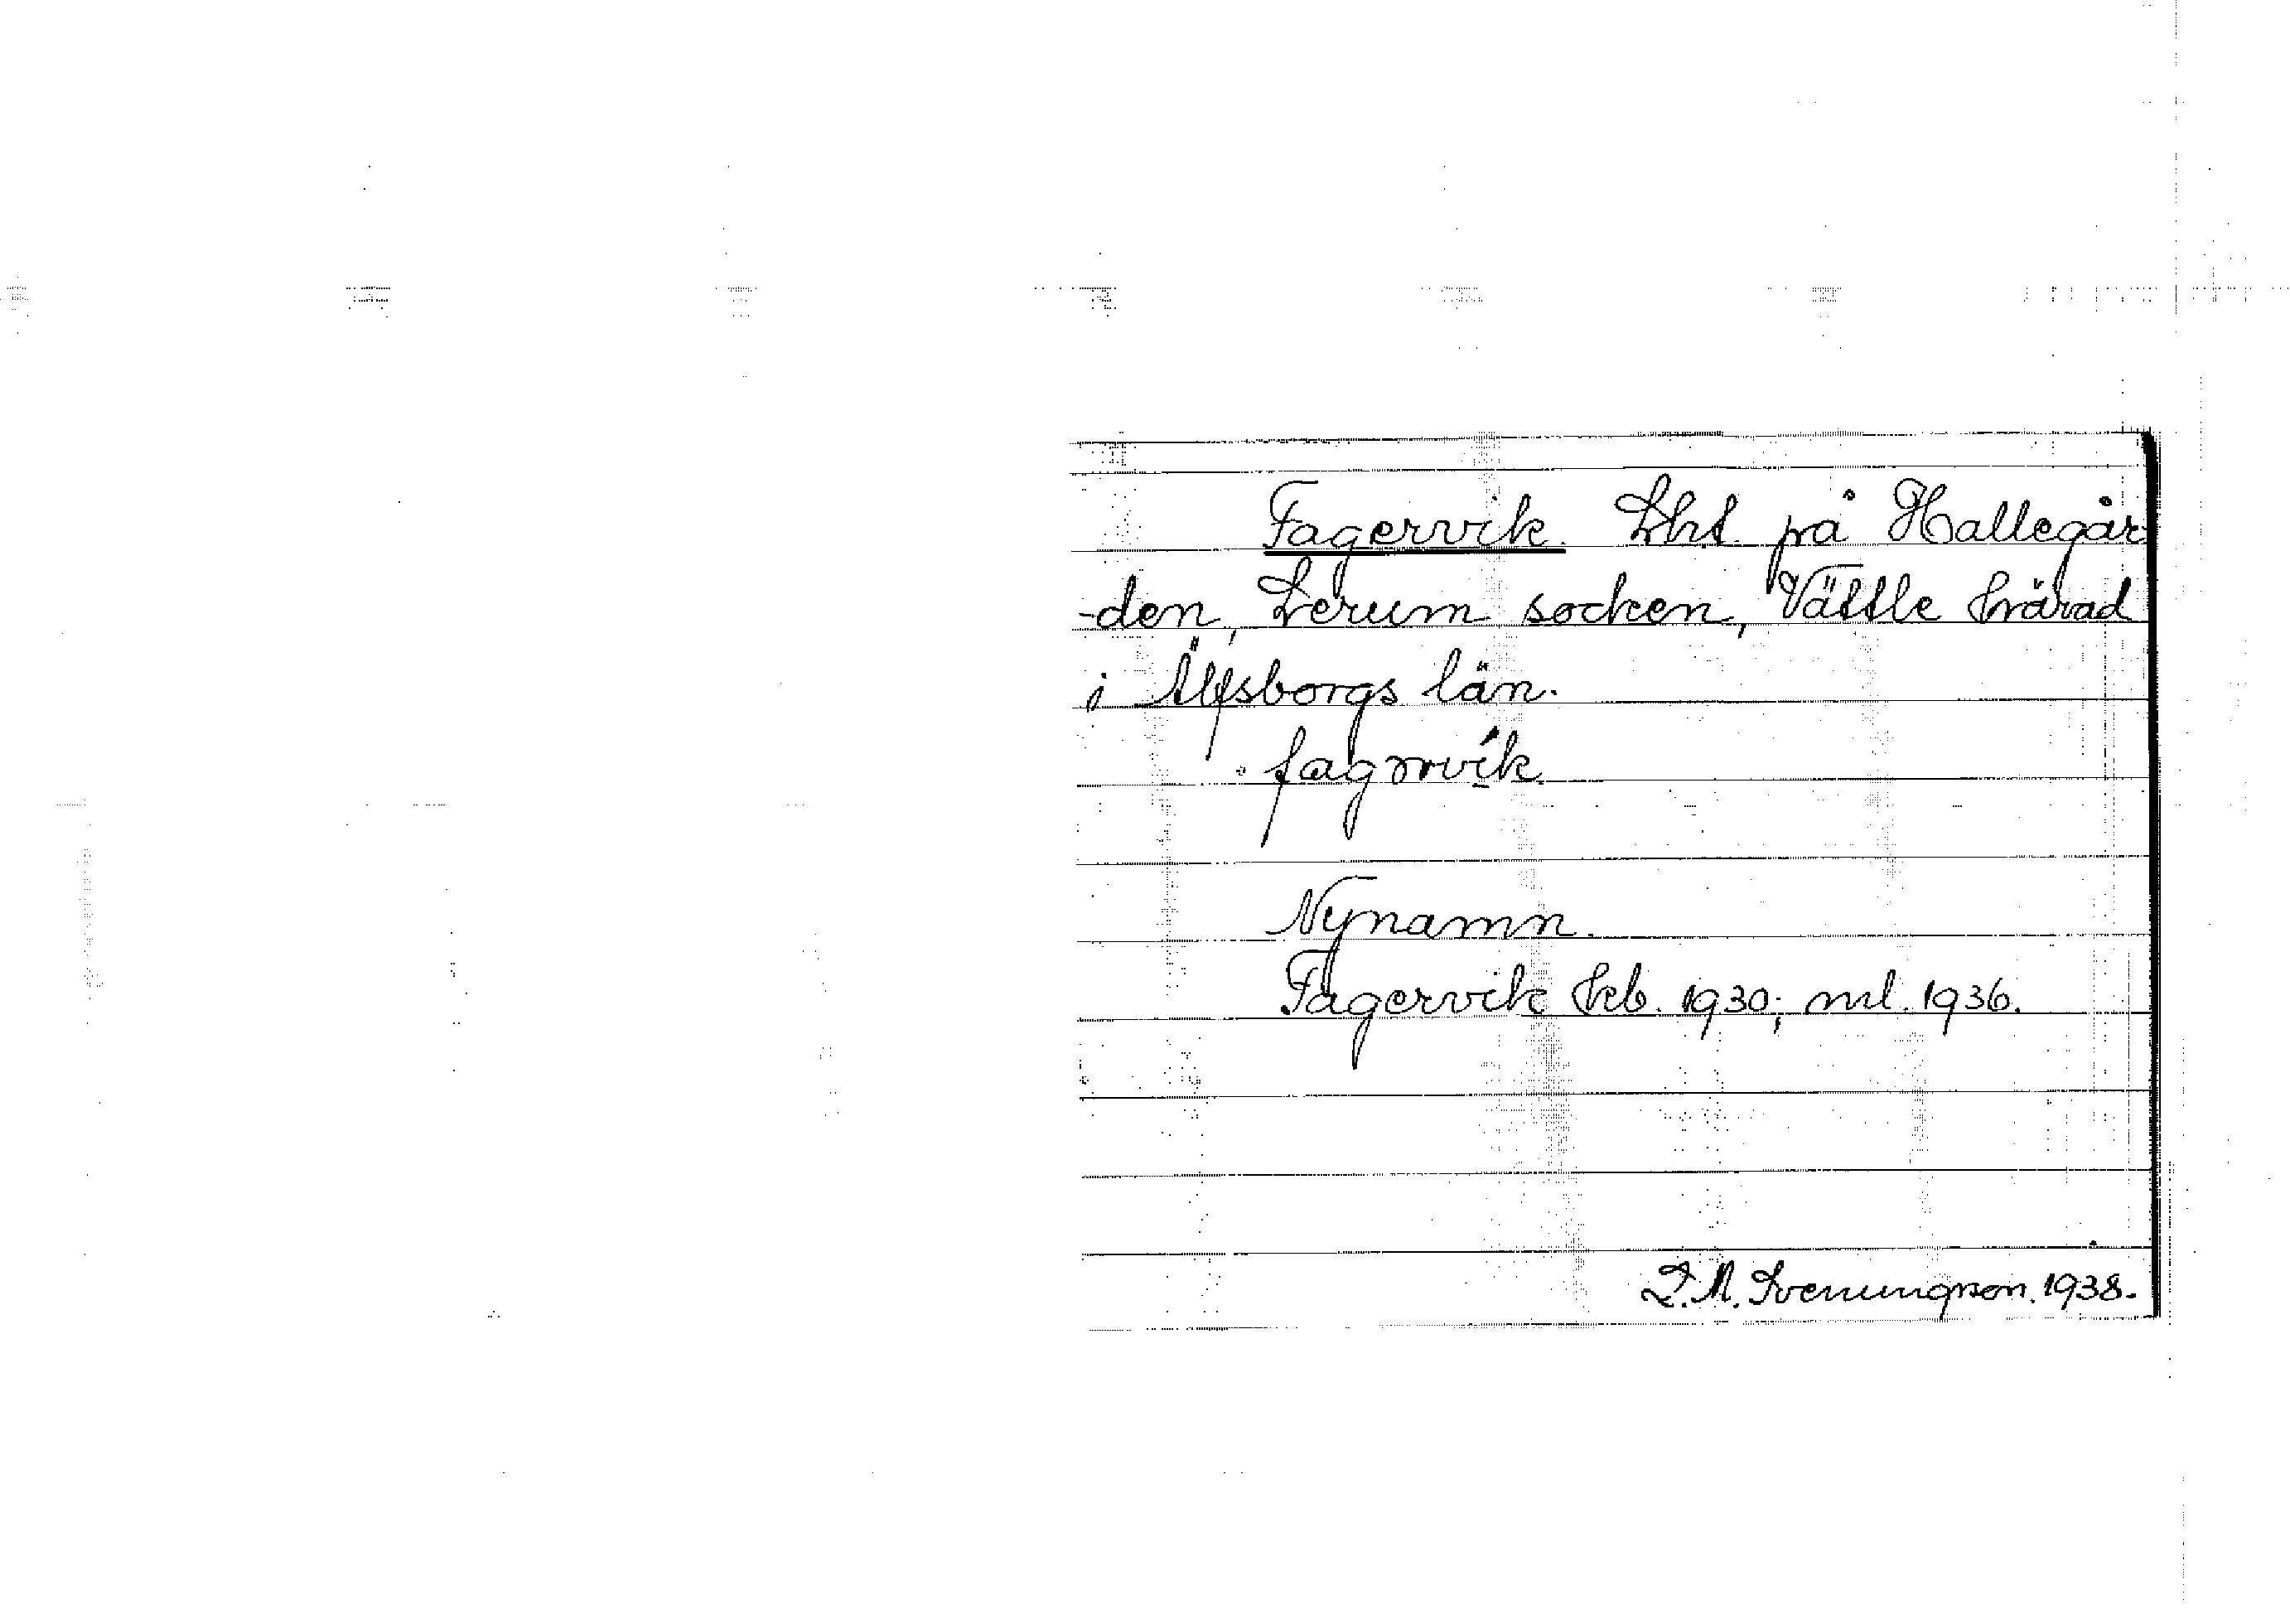 Fagervik. Lht på Hallegår-
-den, Lerum socken, Vättle härad
i Älfsborgs län.
fagrvik
Nynamn.
Fagervik hfb. 1930; ml. 1936.
D. A. Svenungson. 1938.